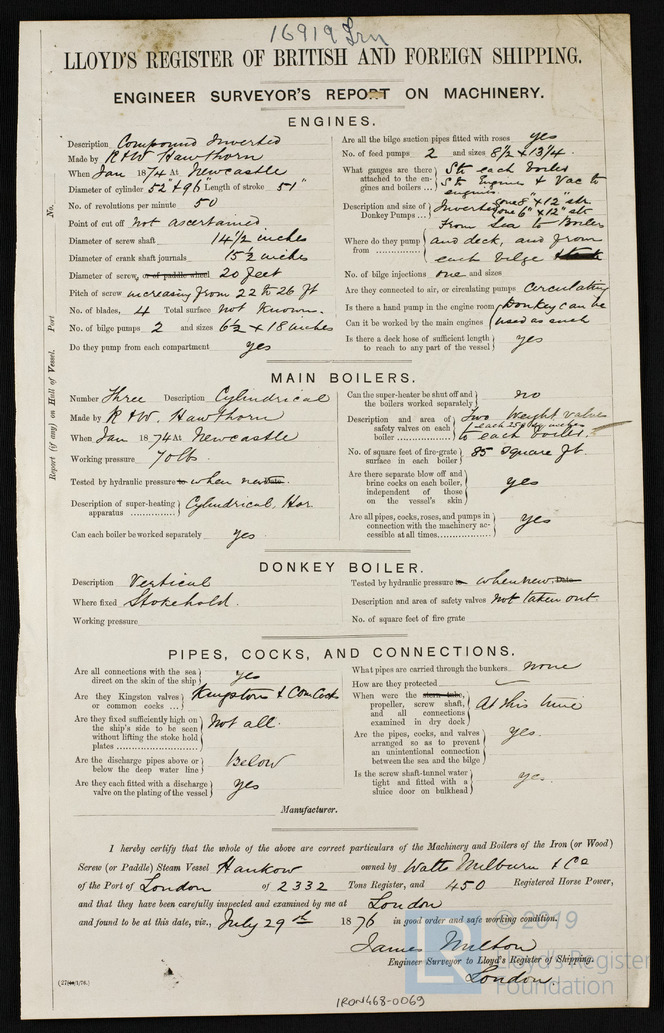 16919 Irn
LLOYD'S REGISTER OF BRITISH AND FOREIGN SHIPPING.
ENGINEER SURVEYOR'S REPORT ON MACHINERY.
ENGINES.
Report (if any) on Hull of Vessel. Port No.
Description Compound Inverted
Made by R & W Hawthorn
When Jan 1874 At Newcastle
Diameter of cylinder 52" & 96" Length of stroke 51"
No. of revolutions per minute 50
Point of cut off Not ascertained
Diameter of screw shaft 14 1/2 inches
Diameter of crank shaft journals 15 1/2 inches
Diameter of screw, or of paddle wheel 20 feet
Pitch of screw increasing from 22 to 26 ft
No. of blades, 4 Total surface not known.
No. of bilge pumps 2 and sizes 6 1/2 x 18 inches
Do they pump from each compartment yes
Are all the bilge suction pipes fitted with roses yes
No. of feed pumps 2 and sizes 8 1/2 x 13 1/4.
What gauges are there attached to the engines and boilers ... Stm each boiler
Stm Engines & Vac to
engines.
Description and size of Donkey Pumps ... Inverted one 8" x 12" str
one 6" x 12" str
Where do they pump from From Sea to Boilers
and deck, and from
each bilge
No. of bilge injections one and sizes
Are they connected to air, or circulating pumps Circulating
Is there a hand pump in the engine room Donkey can be
Can it be worked by the main engines used as such
Is there a deck hose of sufficient length to reach to any part of the vessel yes
MAIN BOILERS.
Number Three Description Cylindrical
Made by R & W. Hawthorn
When Jan 1874 At Newcastle
Working pressure 70 lbs.
Tested by hydraulic pressure to when new Date
Description of super-heating apparatus Cylindrical, Hor
Can each boiler be worked separately yes
Can the super-heater be shut off and the boilers worked separately no
Description and area of safety valves on each boiler Two Weight valves
each 25 sq inches
to each boiler.
No. of square feet of fire-grate surface in each boiler 85 Square ft.
Are there separate blow off and brine cocks on each boiler, independent of those on the vessel's skin yes
Are all pipes, cocks, roses, and pumps in connection with the machinery accessible at all times yes
DONKEY BOILER.
Description Vertical
Where fixed Stokehold.
Working pressure
Tested by hydraulic pressure to when new. Date
Description and area of safety valves Not taken out
No. of square feet of fire grate
PIPES, COCKS, AND CONNECTIONS.
Are all connections with the sea direct on the skin of the ship yes
Are they Kingston valves or common cocks ... Kingstons & Com Cocks
Are they fixed sufficiently high on the ship's side to be seen without lifting the stoke hold plates Not all
Are the discharge pipes above or below the deep water line Below
Are they each fitted with a discharge valve on the plating of the vessel yes
What pipes are carried through the bunkers none
How are they protected
When were the stern tube, propeller, screw shaft, and all connections examined in dry dock At this time
Are the pipes, cocks, and valves arranged so as to prevent an unintentional connection between the sea and the bilge yes.
Is the screw shaft-tunnel water tight and fitted with a sluice door on bulkhead yes.
Manufacturer.
I hereby certify that the whole of the above are correct particulars of the Machinery and Boilers of the Iron (or Wood)
Screw (or Paddle) Steam Vessel Hankow owned by Watts Milburn & Co
of the Port of London of 2332 Tons Register, and 450 Registered Horse Power,
and that they have been carefully inspected and examined by me at London
and found to be at this date, viz., July 29th 1876 in good order and safe working condition.
James Milton
Engineer Surveyor to Lloyd's Register of Shipping.
London.
IRON468-0069
© 2019
LR Lloyd's Register
Foundation